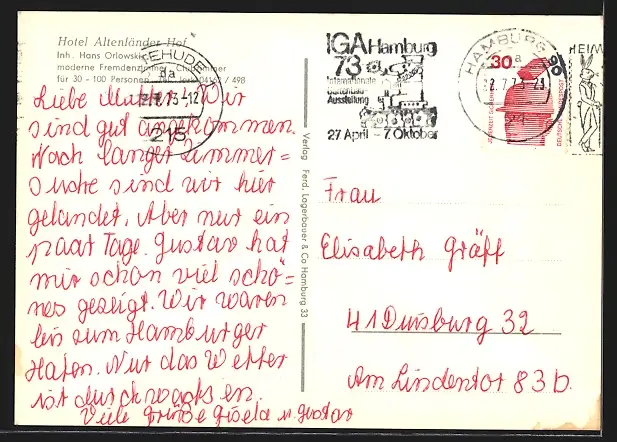 Hotel Altenländer Hof
Inh. Hans Orlowski
moderne Fremdenzimmer
für 30 - 100 Personen
498
Liebe Mutter! Wir
sind gut angekommen.
Nach langer Zimmer=
suche sind wir hier
gelandet. Aber nur ein
paar Tage. Gustav hat
mir schon viel schö=
nes gezeigt. Wir waren
bis zum Hamburger
Hafen. Nur das Wetter
ist durchwachsen.
Viele Grüße Gisela u. Gustav
73-12
215
Verlag Ferd. Lagerbauer & Co Hamburg 33
IGA Hamburg
73
Internationale
Gartenbau
Ausstellung
27 April - 7. Oktober
HAMBURG 90
a
2.7.73-21
30
DEUTSCHE BUNDESPOST
HEIM
Frau
Elisabeth Gräff
41 Duisburg 32
Am Lindentor 83 b.